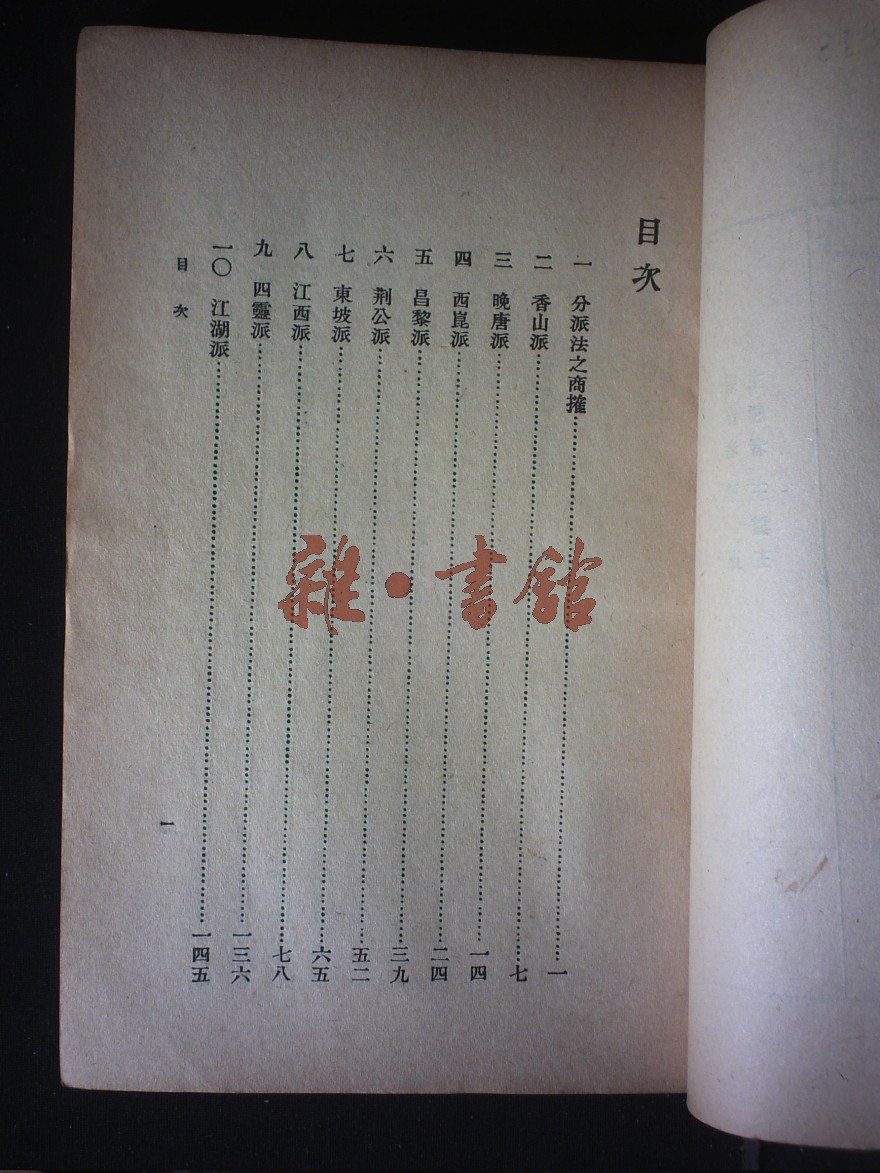 目次
一 分派法之商搉……一
二 香山派……七
三 晚唐派……一四
四 西崑派……二四
五 昌黎派……三九
六 荆公派……五二
七 東坡派……六五
八 江西派……七八
九 四靈派……一三六
一〇 江湖派……一四五
目次
一
雜·書館